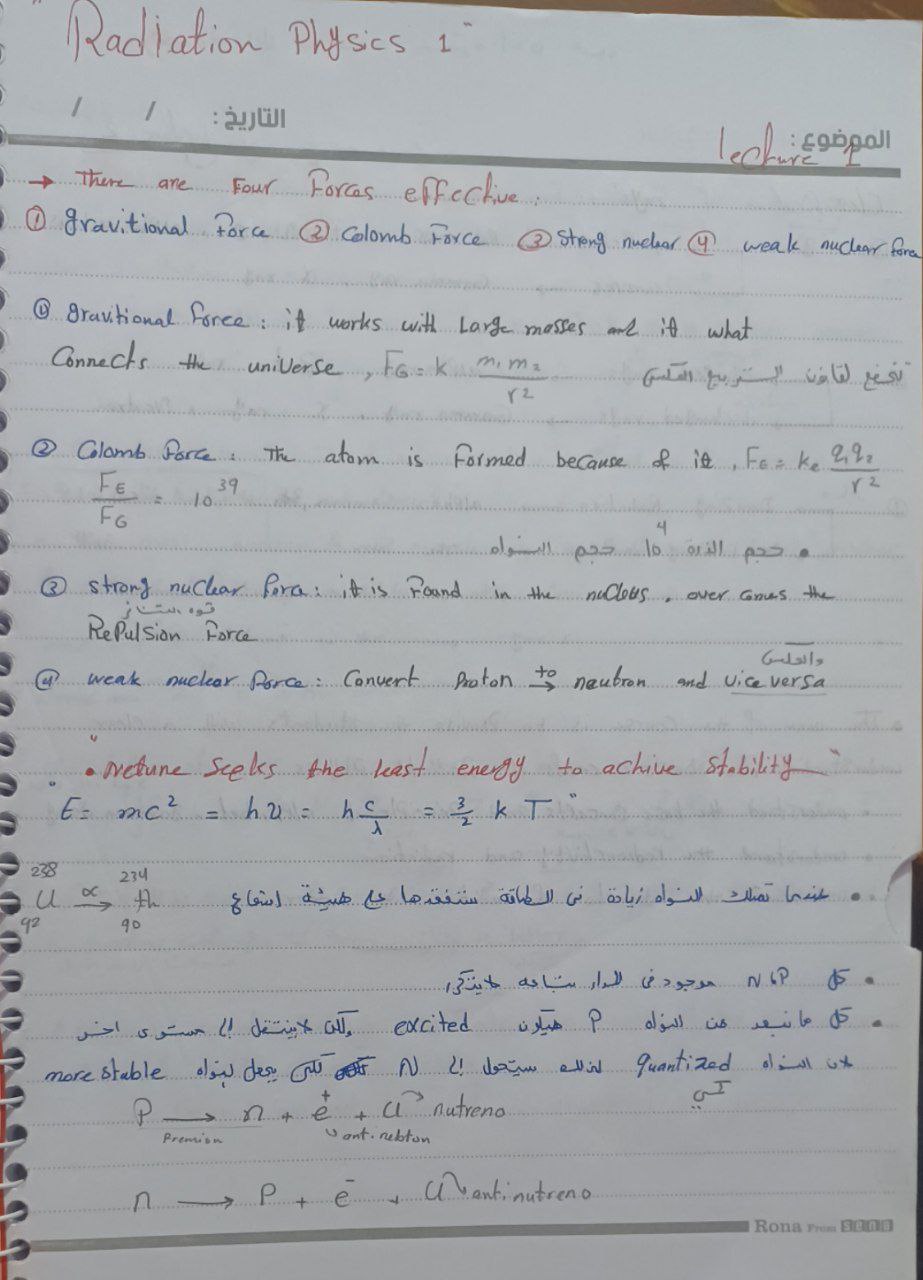 "Radiation Physics 1"
التاريخ: / /
الموضوع: lecture 1
→ There are Four Forces effective:
① gravitional Force ② Colomb Force ③ Strong nuclear ④ weak nuclear force
① gravitional Force: it works with Large masses and it what
Connects the universe, F_G = k m₁m₂/r² تخضع لقانون التربيع العكسى
② Colomb Force: The atom is Formed because of it, F_E = k_e q₁q₂/r²
F_E/F_G = 10³⁹
• حجم الذرة 10⁴ حجم النواه
③ strong nuclear Force: it is Found in the nucleus, over comes the
قوه التنافر
Repulsion Force
والعكس
④ weak nuclear Force: Convert Proton to→ neutron and vice versa
"• Neture Seeks the least energy to achive Stability"
" E = mc² = hυ = h c/λ = 3/2 k T "
• عندما تمتلك النواه زيادة فى الطاقة ستفقدها على هيئة اشعاع ²³⁸₉₂U α→ ²³⁴₉₀th
• كل N & P موجود فى المدار بتاعه
• كل ما نبعد عن النواه P هيكون excited ولكن لا ينتقل إلى مستوى اخر
لان النواه quantized لذلك سيتحول إلى N لكى يجعل النواه more stable
كمي
P → n + e⁺ + υ nutreno
n → P + e⁻ + υ antinutreno
Rona